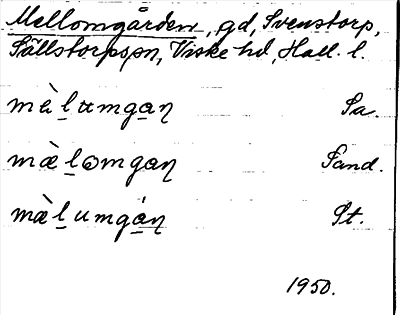 Mellomgården, gd, Svenstorp,
Sällstorps sn, Viske hd, Hall. l.
mæ̀l̲ɯmga̲ŋ Sa.
mæ̀l̲omgaŋ Sand.
mæ̀l̲umgá̲ŋ St.
1950.